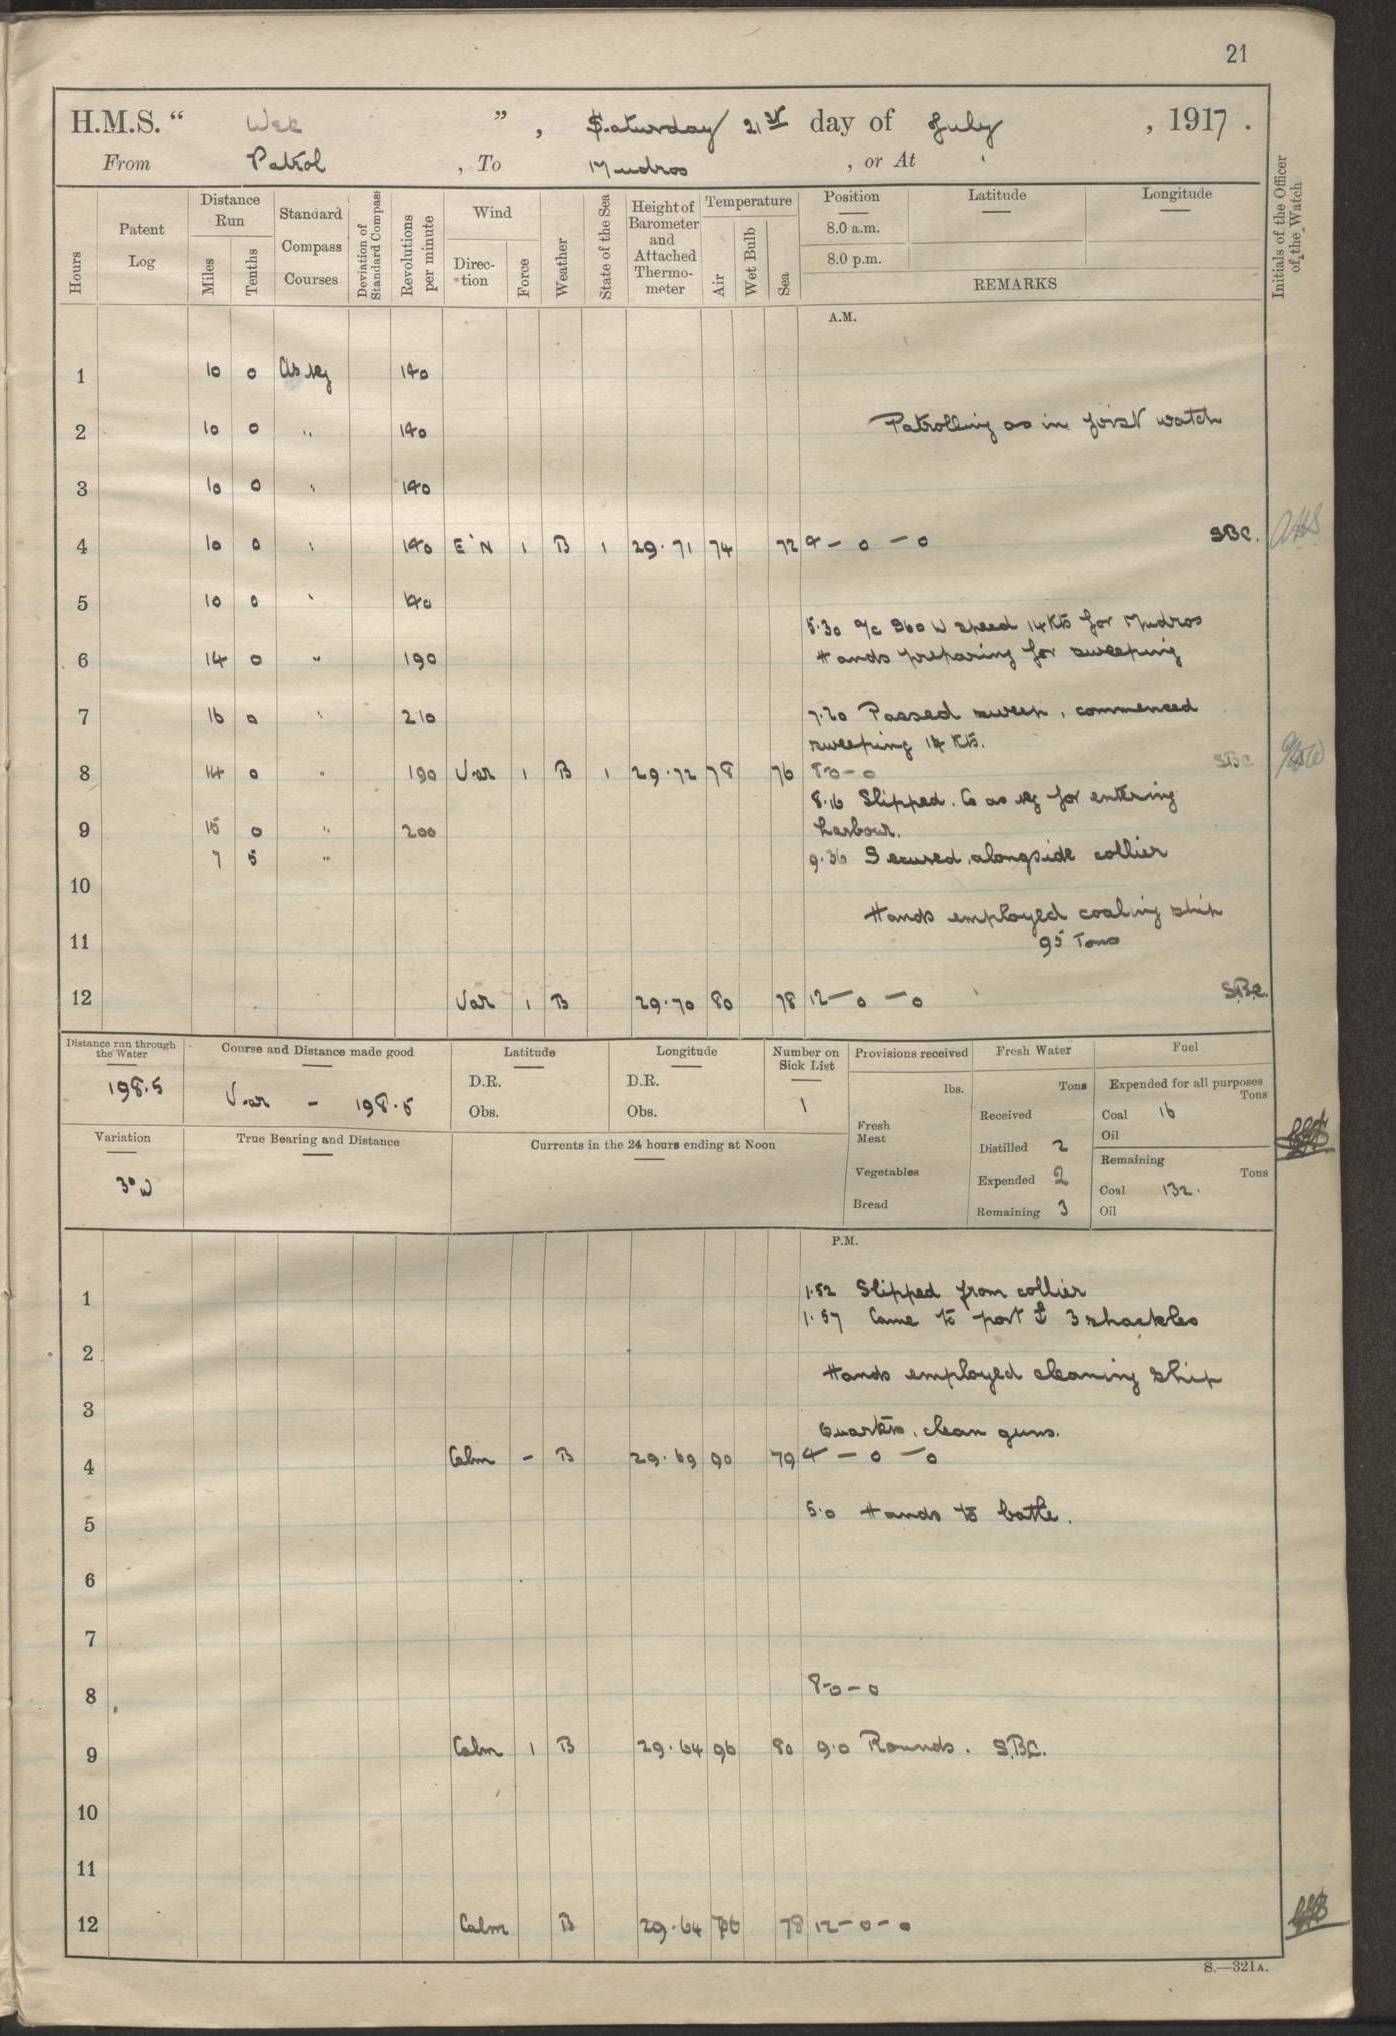 21
H.M.S. “ Wear ”, Saturday 21st day of July, 1917.
From Patrol, To Mudros, or At
Hours
Patent Log
Distance Run
Miles
Tenths
Standard Compass Courses
Deviation of Standard Compass
Revolutions per minute
Wind
Direc-tion
Force
Weather
State of the Sea
Height of Barometer and Attached Thermo-meter
Temperature
Air
Wet Bulb
Sea
Position
Latitude
Longitude
8.0 a.m.
8.0 p.m.
REMARKS
Initials of the Officer of the Watch
A.M.
1 10 0 As req 140
2 10 0 " 140 Patrolling as in first watch
3 10 0 " 140
4 10 0 " 140 E'N 1 B 1 29.71 74 72 4-0-0 SBC.
5 10 0 " 140
5.30 a/c S60W speed 14 Kts for Mudros
6 14 0 " 190 Hands preparing for sweeping
7 16 0 " 210 7.20 Passed sweep, commenced
sweeping 14 Kts.
8 14 0 " 190 Var 1 B 1 29.72 78 76 8-0-0 SBC
8.16 Slipped. Co as req for entering
9 15 0 " 200 harbour.
7 5 " 9.36 Secured alongside collier
10
Hands employed coaling ship
11 95 Tons
12 Var 1 B 29.70 80 78 12-0-0 SBC.
Distance run through the Water
198.5
Course and Distance made good
Var - 198.5
Latitude
D.R.
Obs.
Longitude
D.R.
Obs.
Number on Sick List
1
Provisions received
lbs.
Fresh Meat
Vegetables
Bread
Fresh Water
Tons
Received
Distilled 2
Expended 2
Remaining 3
Fuel
Expended for all purposes
Tons
Coal 16
Oil
Remaining
Tons
Coal 132.
Oil
Variation
3° W
True Bearing and Distance
Currents in the 24 hours ending at Noon
P.M.
1 1.52 Slipped from collier
1.57 Came to port ⚓ 3 shackles
2
Hands employed cleaning ship
3
Quarters, clean guns.
4 Calm - B 29.69 90 79 4-0-0
5 5.0 Hands to bathe.
6
7
8 8-0-0
9 Calm 1 B 29.64 96 80 9.0 Rounds. SBC.
10
11
12 Calm B 29.64 78 12-0-0
S.—321A.